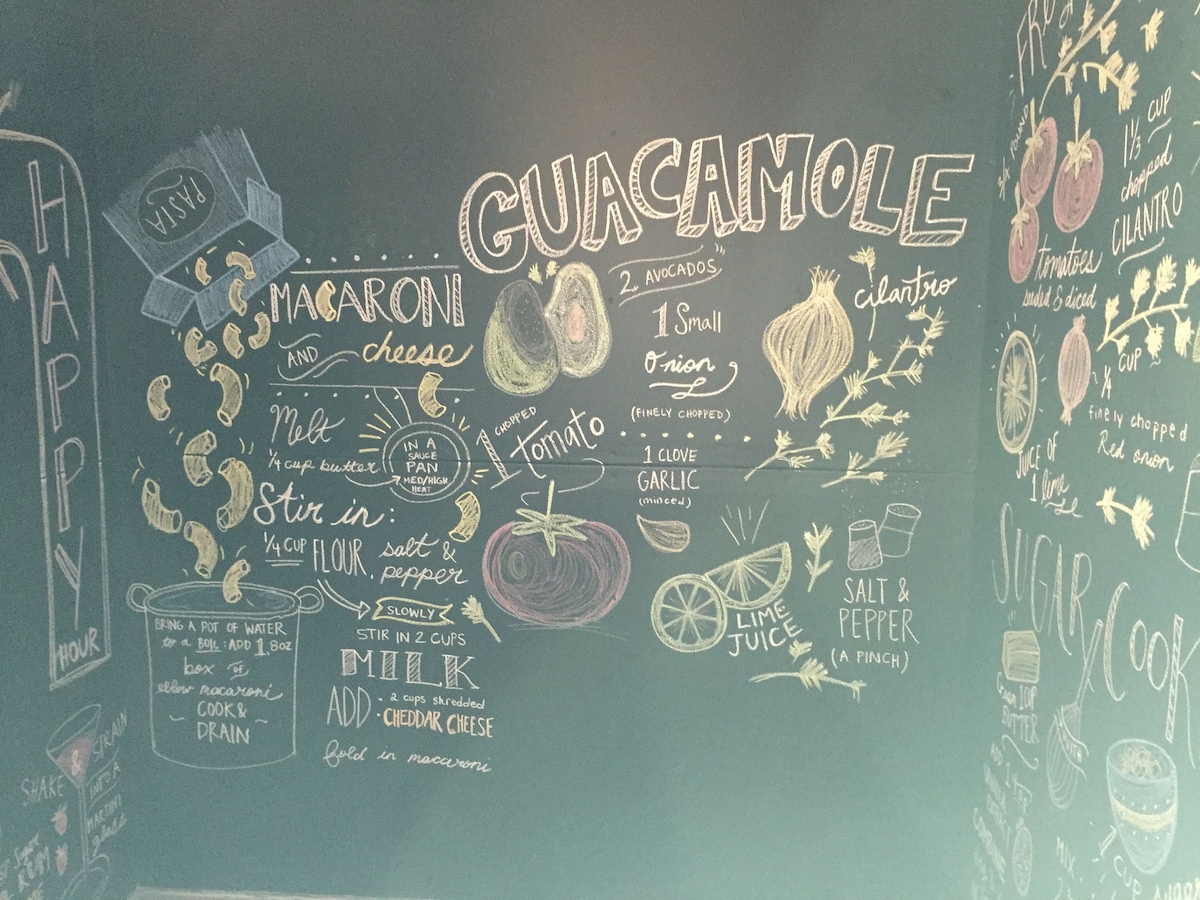 HAPPY
HOUR
SHAKE
&
STRAIN
INTO A
MARTINI
glass
RUM
PASTA
MACARONI
AND cheese
Melt
1/4 cup butter
IN A
SAUCE
PAN
MED/HIGH
HEAT
Stir in:
1/4 CUP FLOUR, salt &
pepper
SLOWLY
STIR IN 2 CUPS
MILK
ADD • 2 cups shredded
CHEDDAR CHEESE
fold in macaroni
BRING A POT OF WATER
to a BOIL: ADD 1.8oz
box OF
elbow macaroni
COOK &
DRAIN
GUACAMOLE
2 AVOCADOS
1 Small
Onion
(FINELY CHOPPED)
1 CHOPPED
tomato
1 CLOVE
GARLIC
(minced)
cilantro
LIME
JUICE
SALT &
PEPPER
(A PINCH)
POUND
tomatoes
seeded & diced
1 1/3 CUP
chopped
CILANTRO
1/4 CUP
finely chopped
Red onion
JUICE OF
1 lime
SUGAR
COOK
CUP
BUTTER
MIX
1 CUP